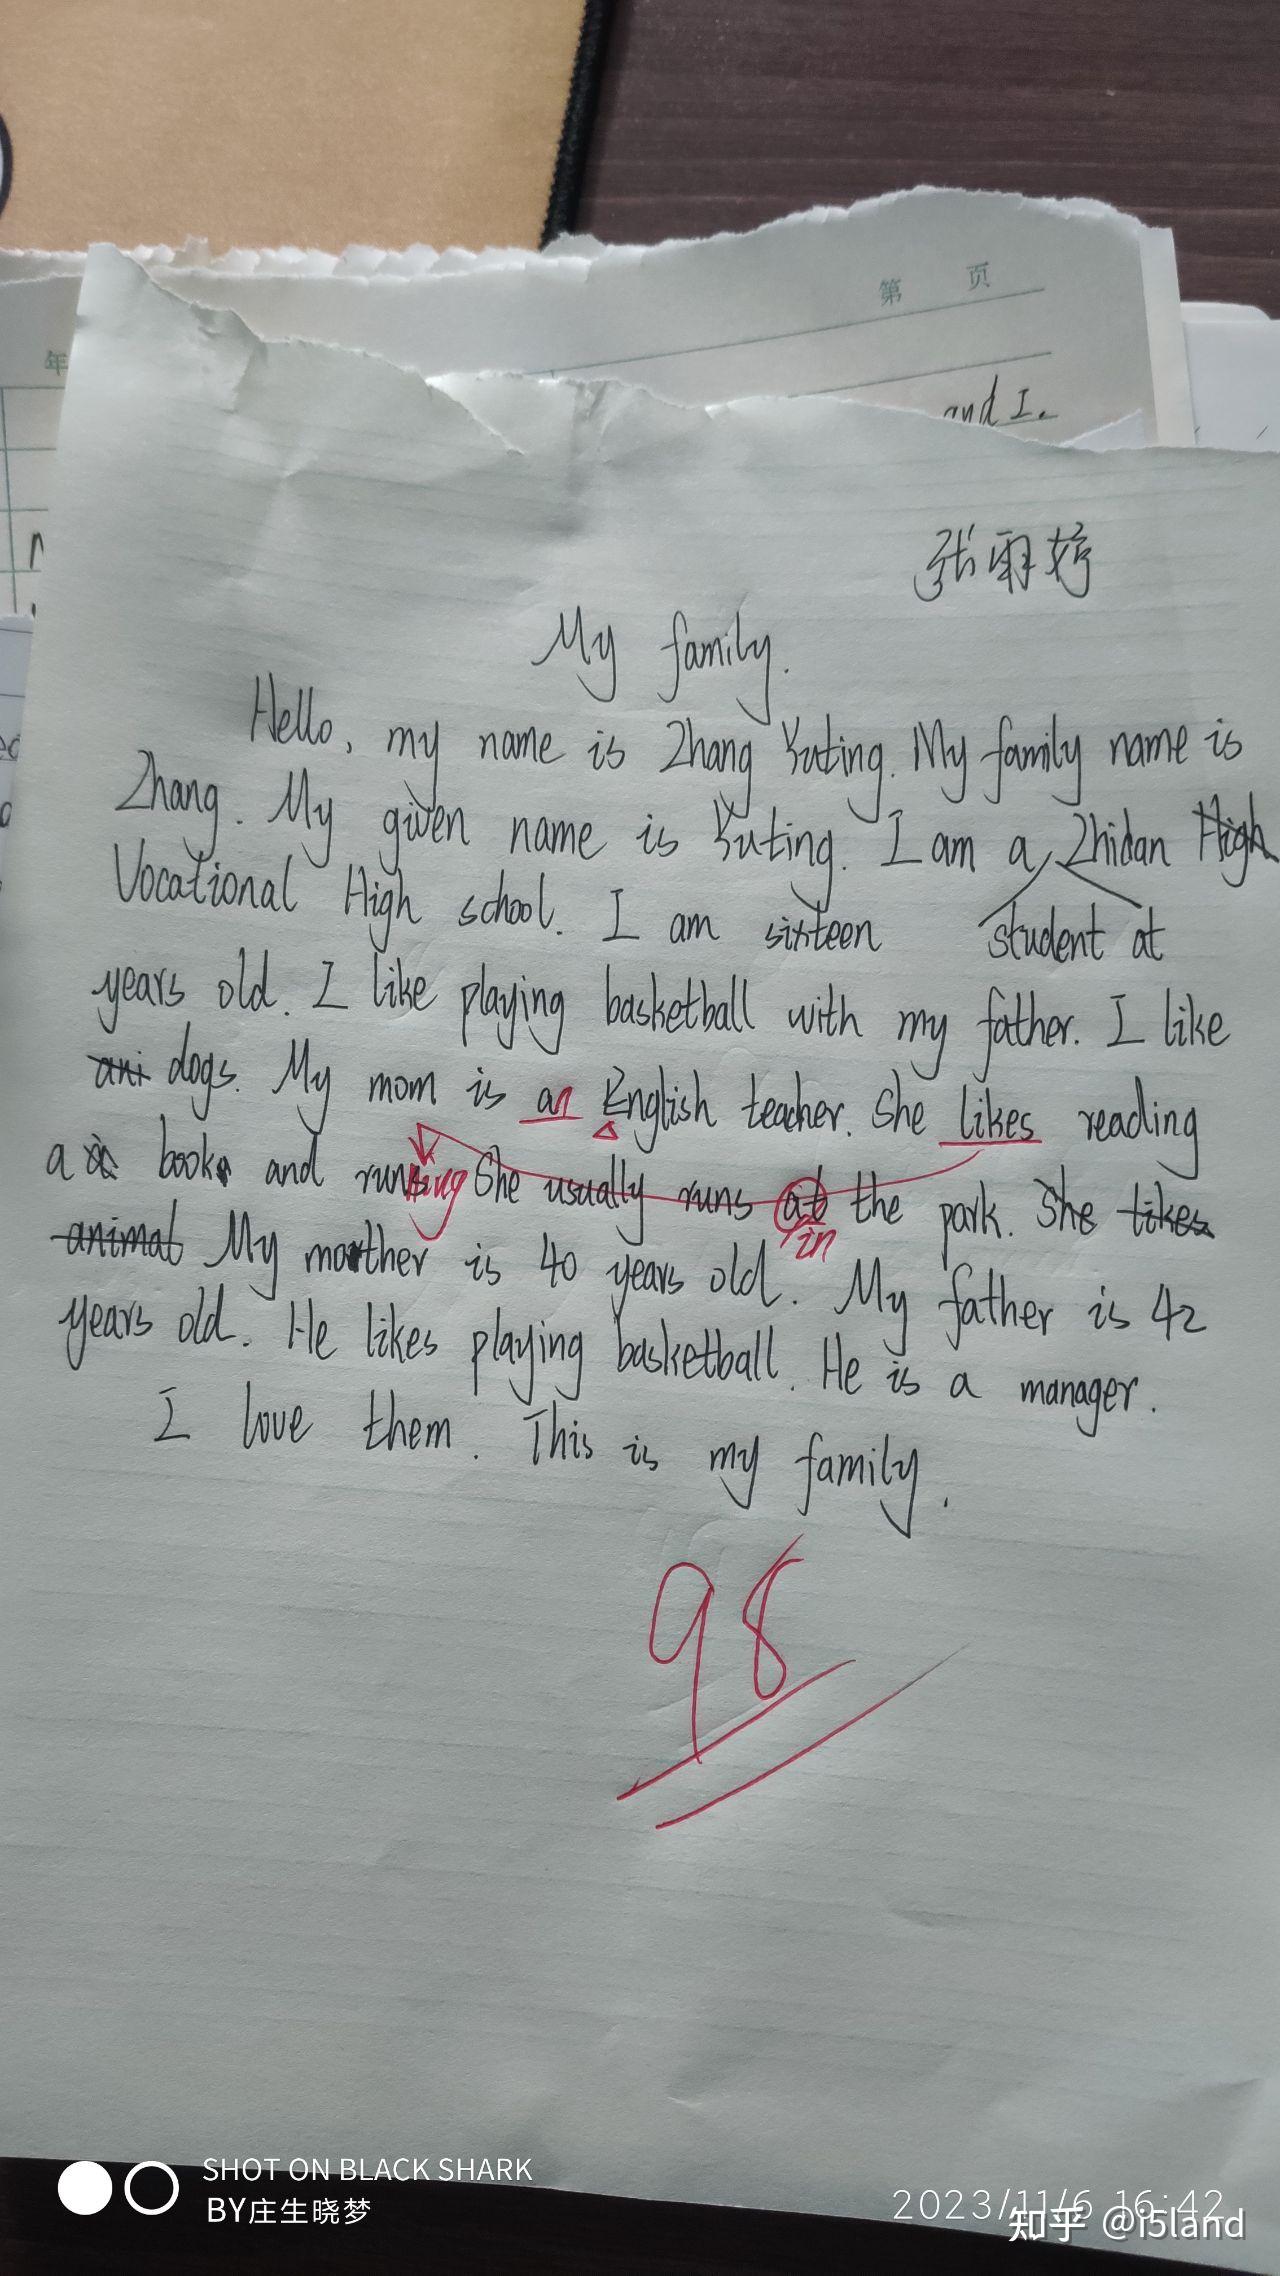 第 页
年
and I.
张雨婷
My family.
Hello, my name is Zhang Yuting. My family name is
Zhang. My given name is Yuting. I am a Zhidan High
student at
Vocational High school. I am sixteen
years old. I like playing basketball with my father. I like
ani dogs. My mom is an English teacher. She likes reading
a book and runs She usually runs at the park. She likes
ning
in
animal My mother is 40 years old. My father is 42
years old. He likes playing basketball. He is a manager.
I love them. This is my family.
98
SHOT ON BLACK SHARK
BY庄生晓梦
2023/11/6 16:42
知乎 @i5land